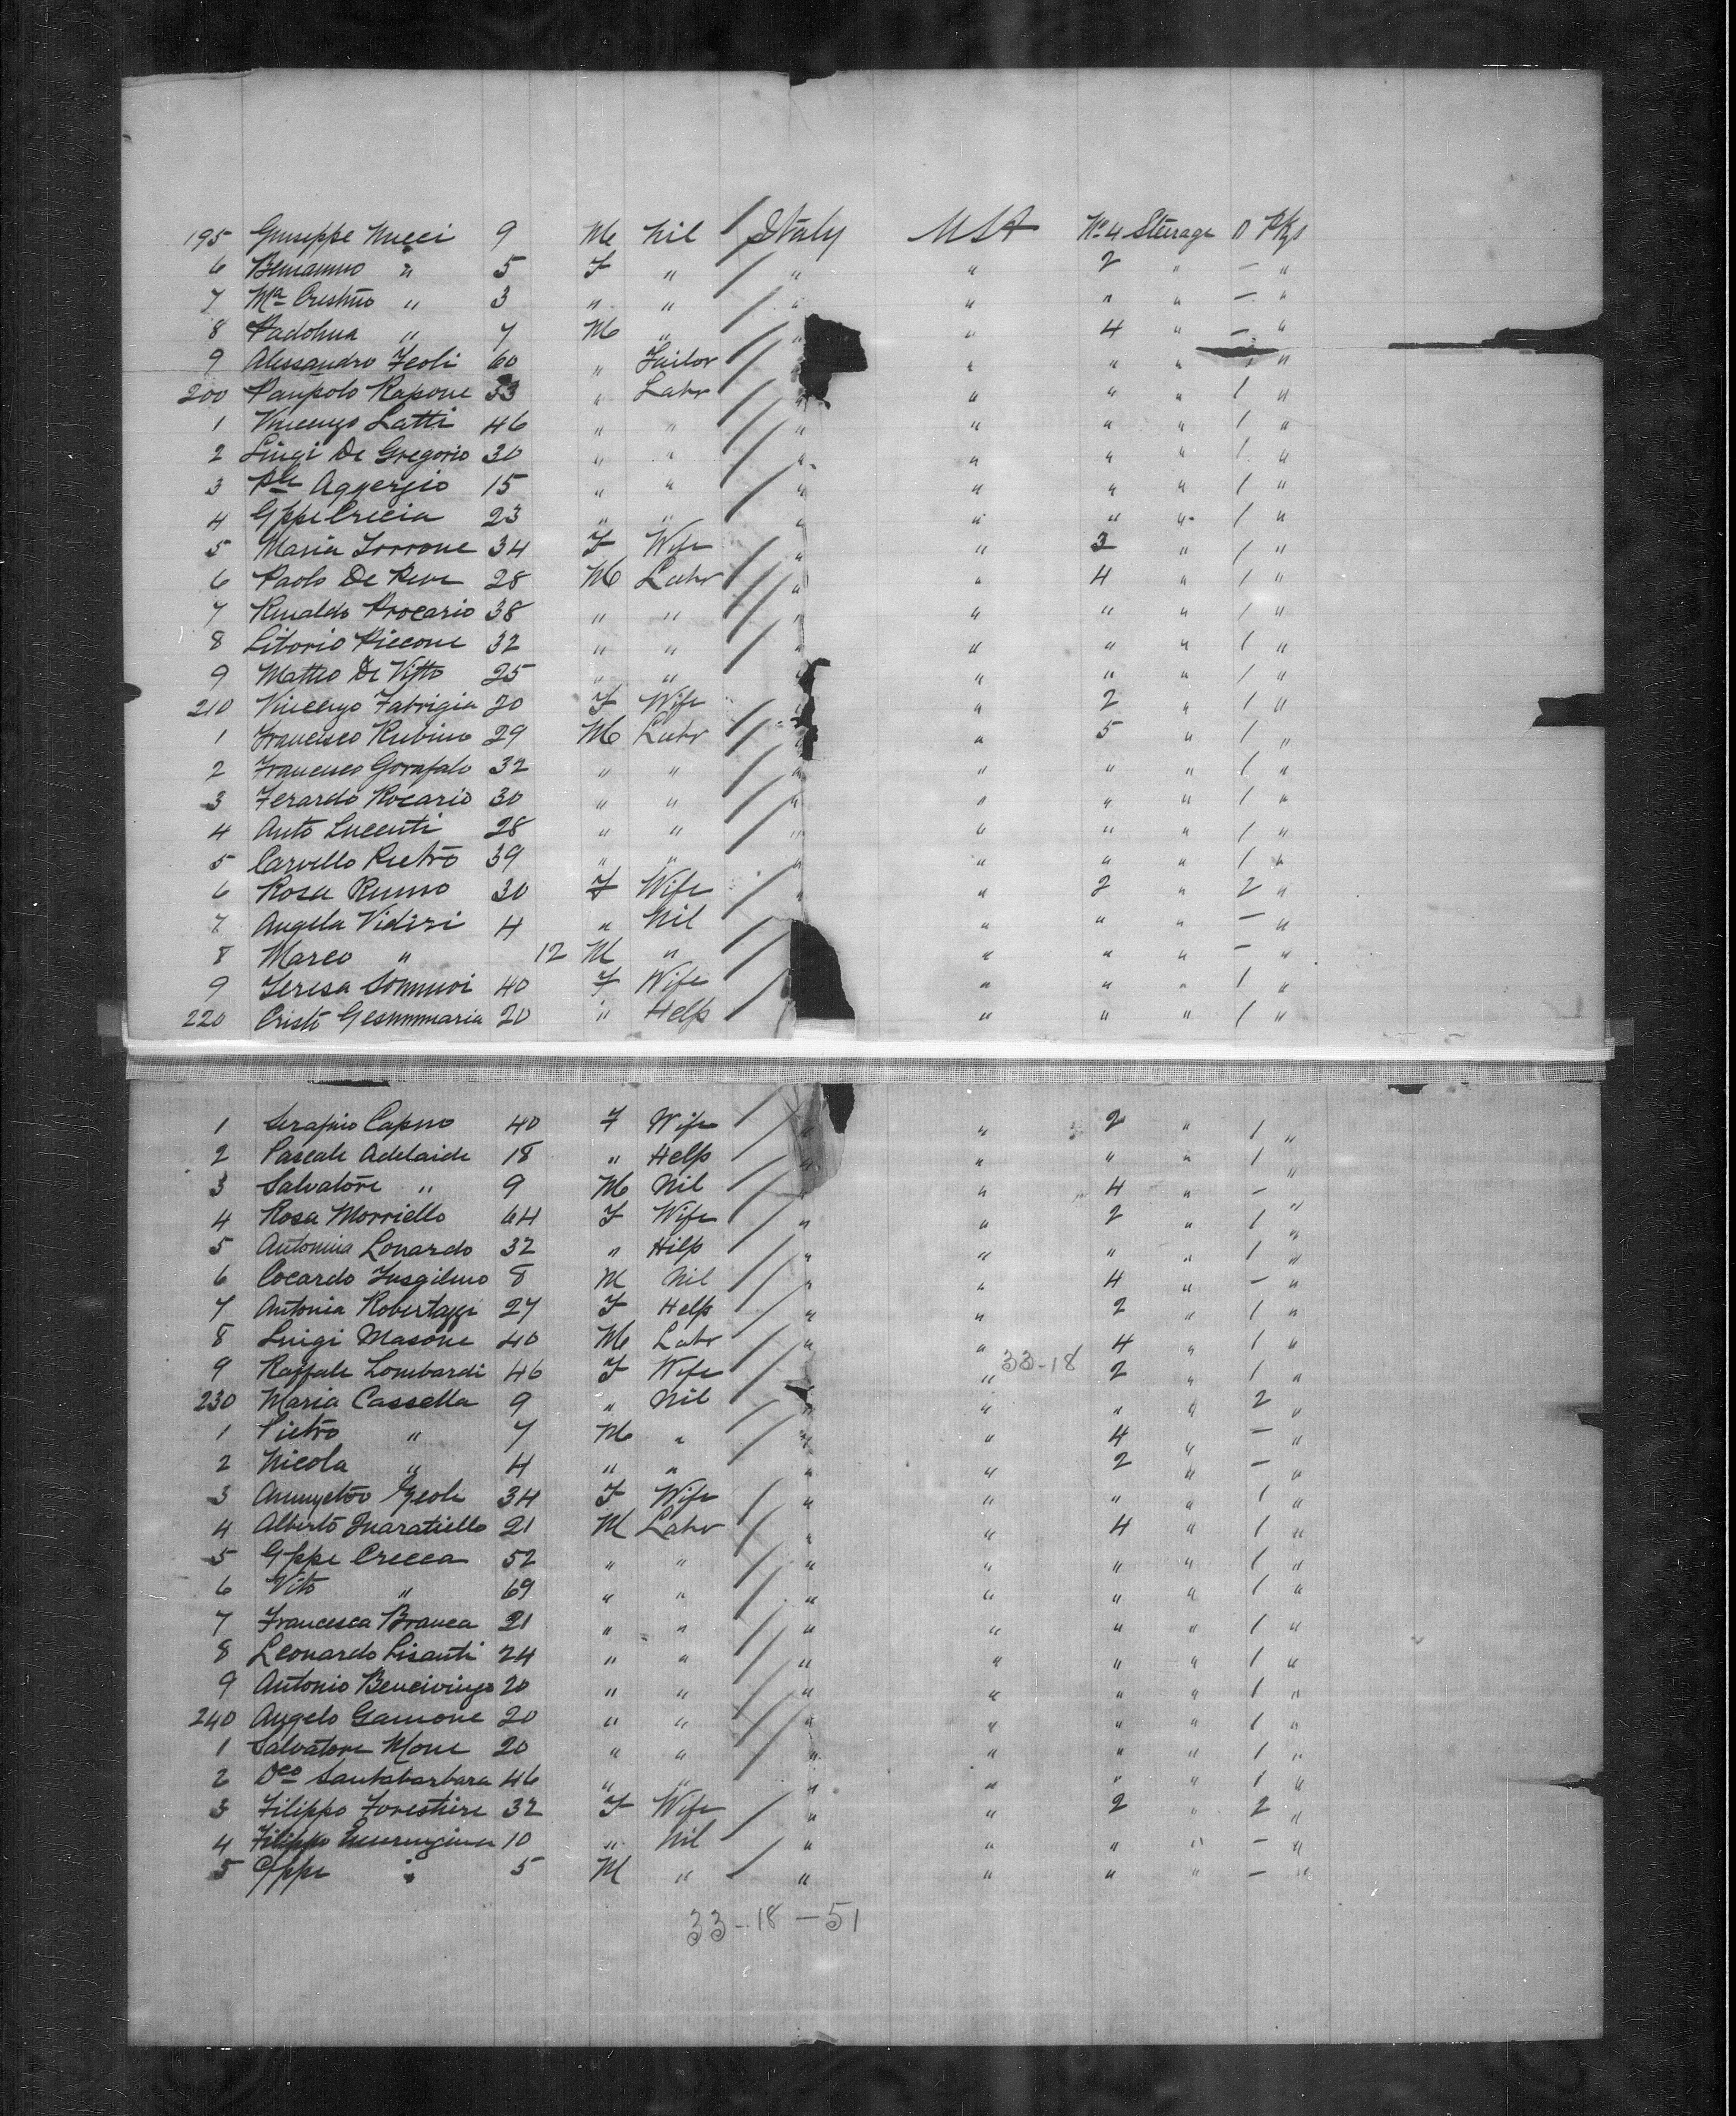 195 Giuseppe Nucci 9 M Nil / Italy USA No 4 Sterage 0 Pkgs
6 " 5 F " / " " 2 " — "
7 Ma " 3 " " / " " " " — "
8 " 7 M " / " " 4 " — "
9 Alessandro Feoli 60 " / " " " "
200 Rapone 33 " Labr / " " " " 1 "
1 Vincenzo Latti 46 " " / " " " " 1 "
2 Luigi De Gregorio 30 " " / " " " " 1 "
3 15 " " / " " " " 1 "
4 Gppe Crecia 23 " " / " " " " 1 "
5 Maria 34 F Wife / " " 3 " 1 "
6 Paolo De 28 M Labr / " " 4 " 1 "
7 Rinaldo Procario 38 " " / " " " " 1 "
8 Litorio Piccone 32 " " / " " " " 1 "
9 Matteo De Vitto 25 " " / " " " 1 "
210 Vincenzo Fabrigia 20 F Wife " " 2 " 1 "
1 Francisco Rubino 29 M Labr / " " 5 " 1 "
2 Francisco Gorafalo 32 " " / " " " " 1 "
3 Ferardo Rocario 30 " " / " " " " 1 "
4 Anto Lucenti 28 " " / " " " " 1 "
5 Carvello Pietro 39 " " / " " " " 1 "
6 Rosa 30 F Wife / " " 2 " 2 "
7 Angela Vidiri 4 " Nil / " " " — "
8 Marco " 12 M " / " " " — "
9 Teresa 40 F Wife / " " " 1 "
220 Cristo 20 " Help / " " " 1 "
1 40 F Wife / " " 2 " 1 "
2 Pascale Adelaide 18 " Help / " " " " 1 "
3 Salvatore " 9 M Nil / " " 4 " — "
4 Rosa Morriello 64 F Wife / " " 2 " 1 "
5 Antonina Lonardo 32 " Help / " " " " 1 "
6 Cocardo 8 M Nil / " " 4 " — "
7 Antonia Robertazzi 27 F Help / " " 2 " 1 "
8 Luigi Masone 40 M Labr / " " 4 " 1 "
9 Raffale Lombardi 46 F Wife / " 33-18 2 " 1 "
230 Maria Cassella 9 " Nil / " " " " 2 "
1 Pietro " 7 M " / " " 4 " — "
2 Nicola " 4 " " " " 2 " — "
3 Feoli 34 F Wife / " " " " 1 "
4 Alberto 21 M Labr / " " 4 " 1 "
5 Gppe Crecca 52 " " / " " " " 1 "
6 Vito " 69 " " / " " " " 1 "
7 Francesca Branca 21 " " / " " " " 1 "
8 Leonardo Lisanti 24 " " / " " " " 1 "
9 Antonio 20 " " / " " " " 1 "
240 Angelo 20 " " / " " " " 1 "
1 Salvatore Mone 20 " " / " " " " 1 "
2 Dco Santabarbara 46 " " " " " " 1 "
3 Filippo Forestiere 32 F Wife / " " 2 " 2 "
4 Filippo 10 " Nil / " " " " — "
5 Gppe " 5 M " / " " " " — "
33-18-51